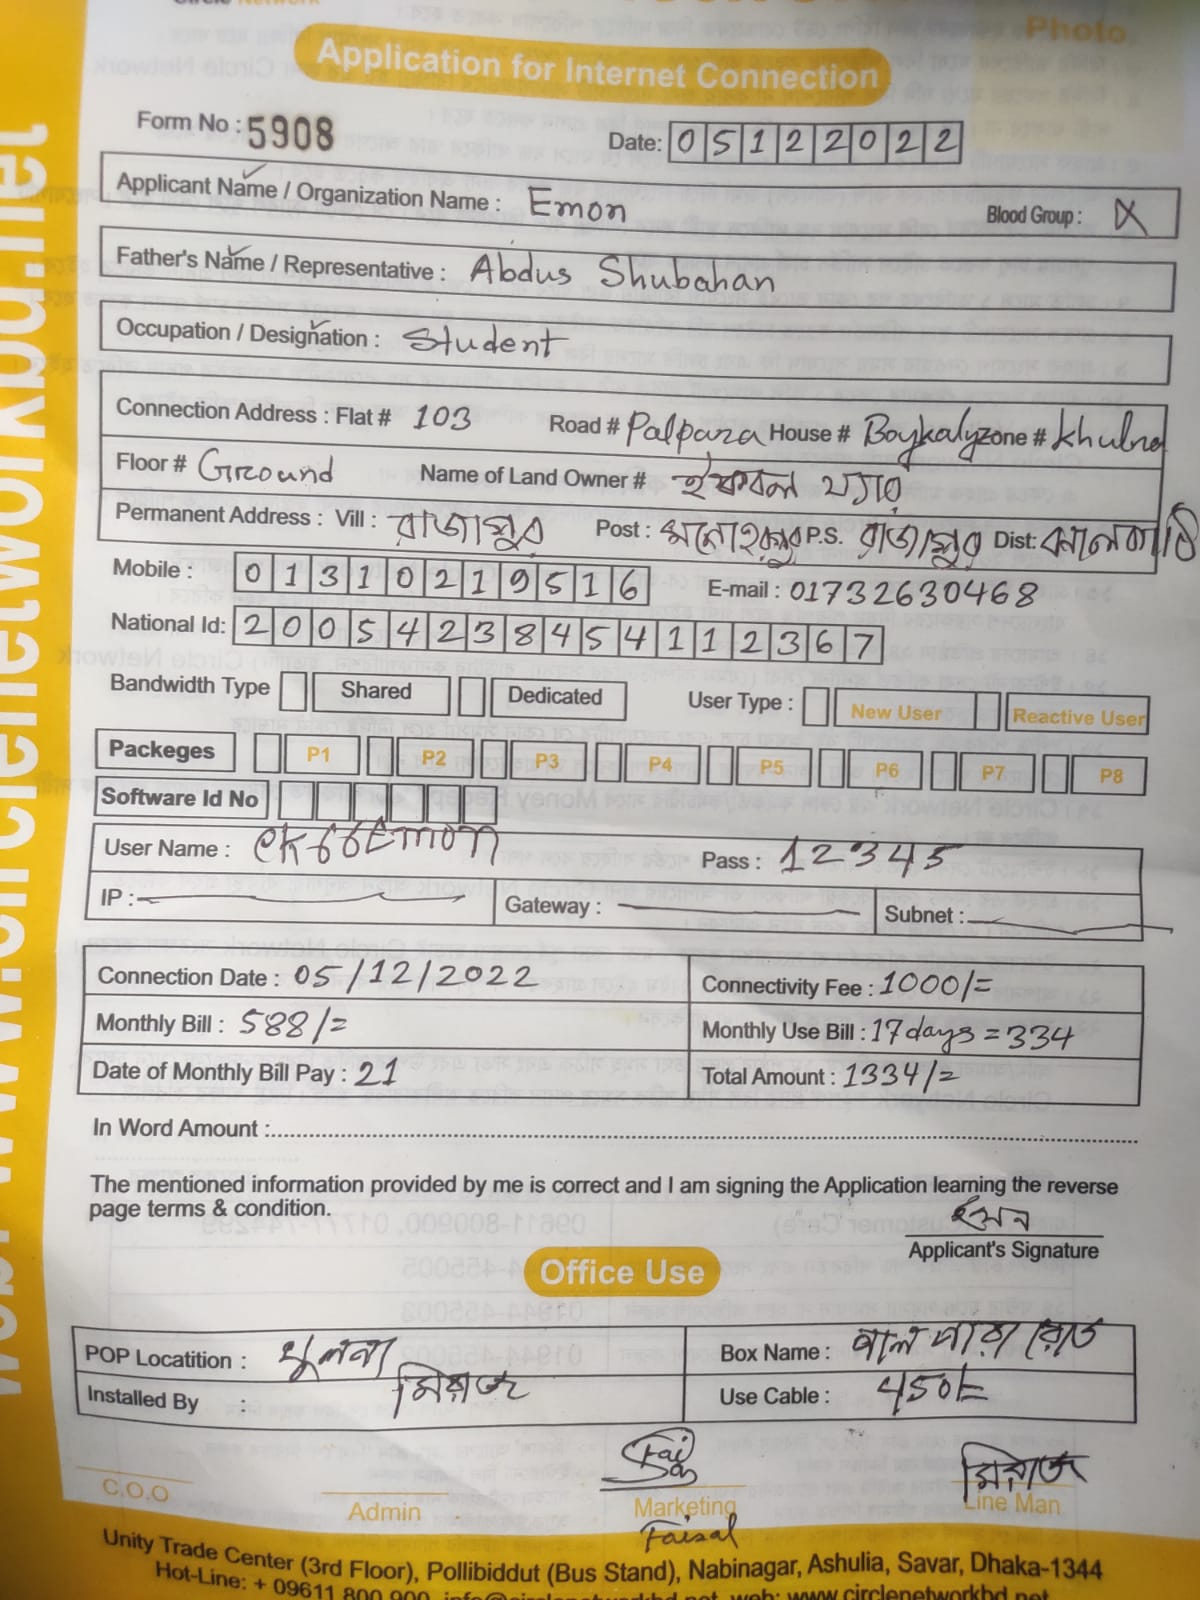 Circle Network
Photo
Application for Internet Connection
Form No : 5908
Date: 05122022
Applicant Name / Organization Name : Emon Blood Group : X
Father's Name / Representative : Abdus Shubahan
Occupation / Designation : Student
Connection Address : Flat # 103 Road # Palpara House # Boykaly Zone # Khulna
Floor # Ground Name of Land Owner # ইকবাল
Permanent Address : Vill : রাজাপুর Post : মনোহরপুর P.S. রাজাপুর Dist:
Mobile : 01310219516 E-mail : 01732630468
National Id: 20054238454112367
Bandwidth Type Shared Dedicated User Type : New User Reactive User
Packeges P1 P2 P3 P4 P5 P6 P7 P8
Software Id No
User Name : Pass : 12345
IP : Gateway : Subnet :
Connection Date : 05/12/2022 Connectivity Fee : 1000/=
Monthly Bill : 588/= Monthly Use Bill : 17 days = 334
Date of Monthly Bill Pay : 21 Total Amount : 1334/=
In Word Amount :
The mentioned information provided by me is correct and I am signing the Application learning the reverse
page terms & condition.
ইমন
Applicant's Signature
Office Use
POP Locatition : খুলনা Box Name : পাল পাড়া রোড
Installed By : মিরাজ Use Cable :
Faisal মিরাজ
C.O.O Admin Marketing Line Man
Faisal
Unity Trade Center (3rd Floor), Pollibiddut (Bus Stand), Nabinagar, Ashulia, Savar, Dhaka-1344
Hot-Line: + 09611 800 900, web: www.circlenetworkbd.net
web: www.circlenetworkbd.net